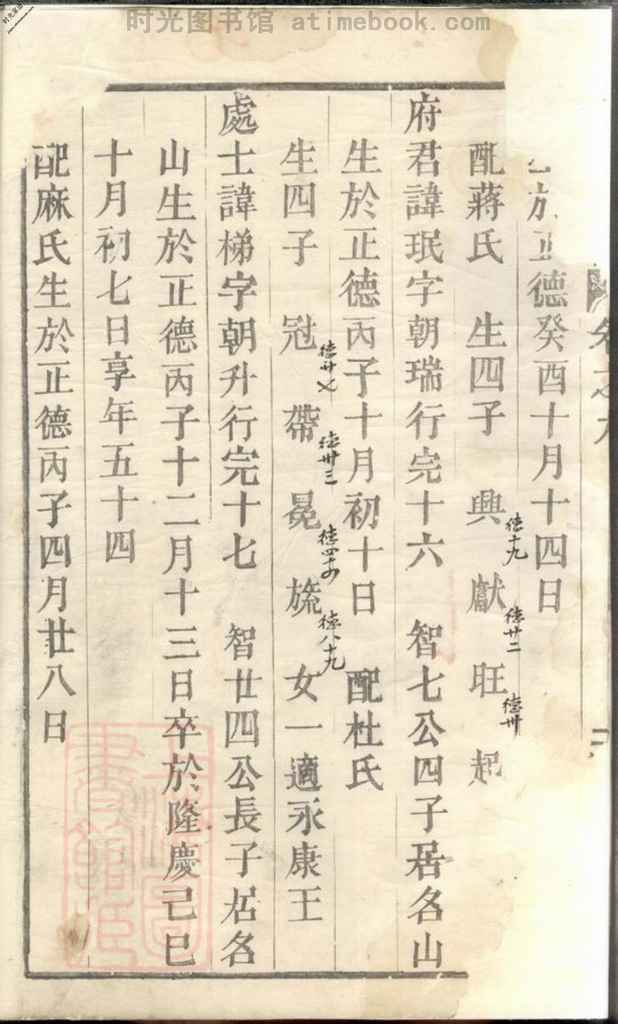 时光图书馆 atimebook.com
於正德癸酉十月十四日
配蔣氏 生四子 興 獻 旺 起
德十九 德廿二 德卅
府君諱珉字朝瑞行完十六 智七公四子居名山
生於正德丙子十月初十日 配杜氏
生四子 冠 帶 冕 旒 女一適永康王
德卅三 德八十九
處士諱梯字朝升行完十七 智廿四公長子居名
山生於正德丙子十二月十三日卒於隆慶己巳
十月初七日享年五十四
配麻氏生於正德丙子四月廿八日